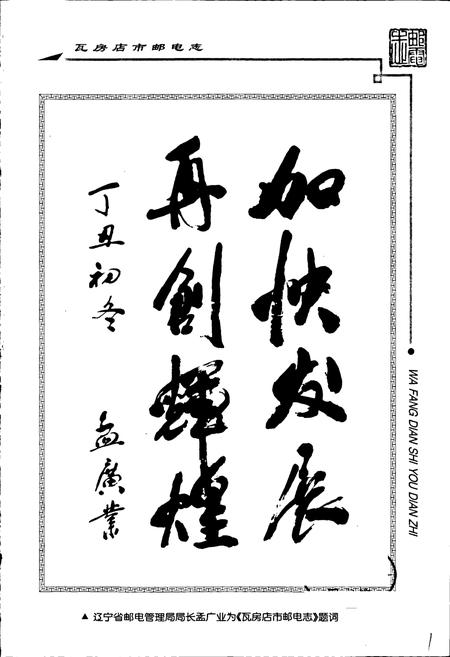 瓦房店市邮电志
加快发展
再創輝煌
丁丑初冬
孟廣業
WA FANG DIAN SHI YOU DIAN ZHI
▲ 辽宁省邮电管理局局长孟广业为《瓦房店市邮电志》题词
1